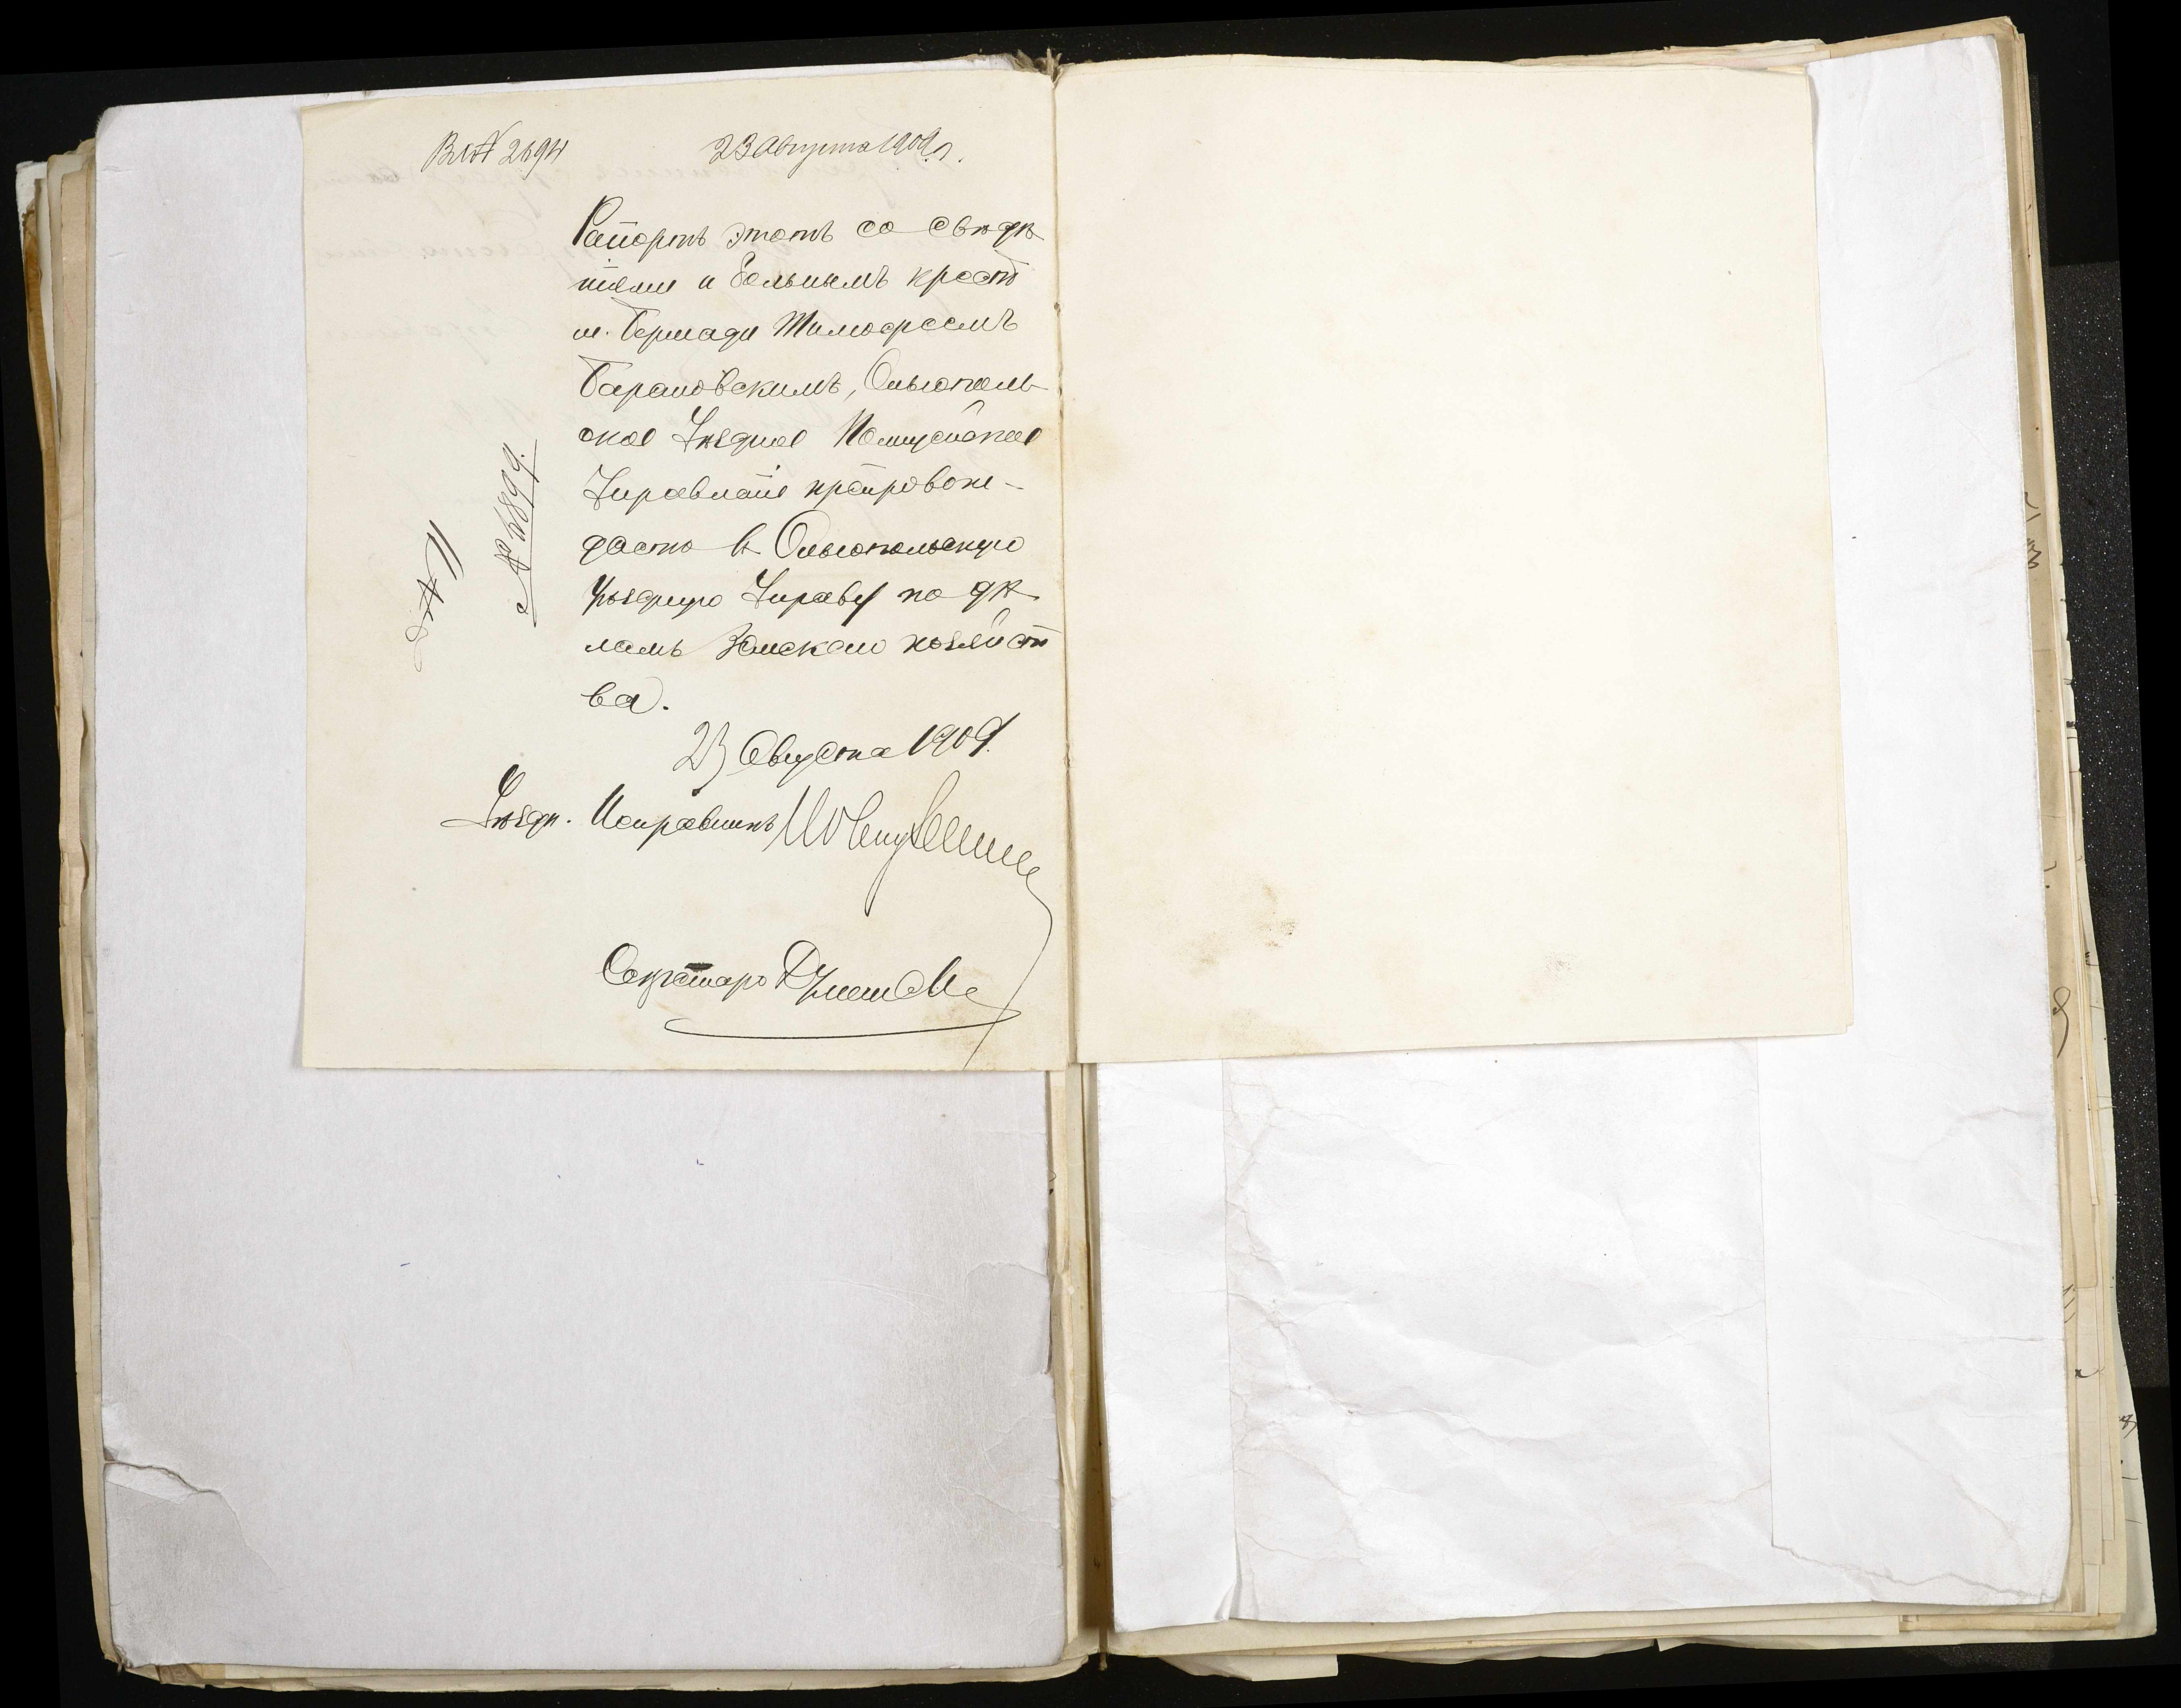 Вх № 2694 23 Августа 1909 г.
Рапортъ этотъ со свѣдѣ
ніями и больнымъ крест
м. Бершади Тимофеемъ
Барановскимъ, Ольгополь
ское Уѣздное Полицейское
Управленіе препровож-
даетъ въ Ольгопольскую
Уѣздную Управу по дѣ
ламъ Земскаго хозяйст
ва.
23 Августа 1909
Уѣздн. Исправникъ
Секретарь
№ 6899.